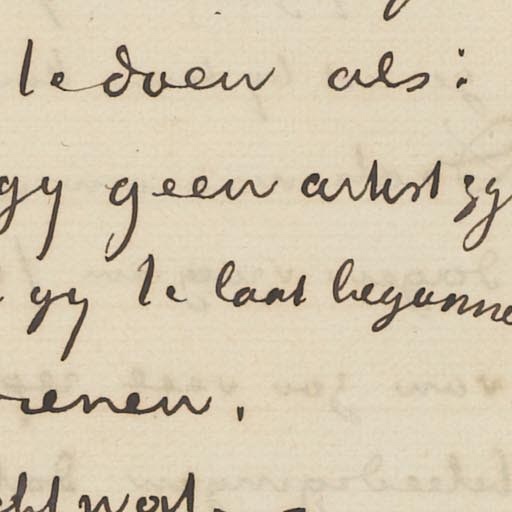 te doen als:
gy geen artist zy
gy te laat begonne
ienen.